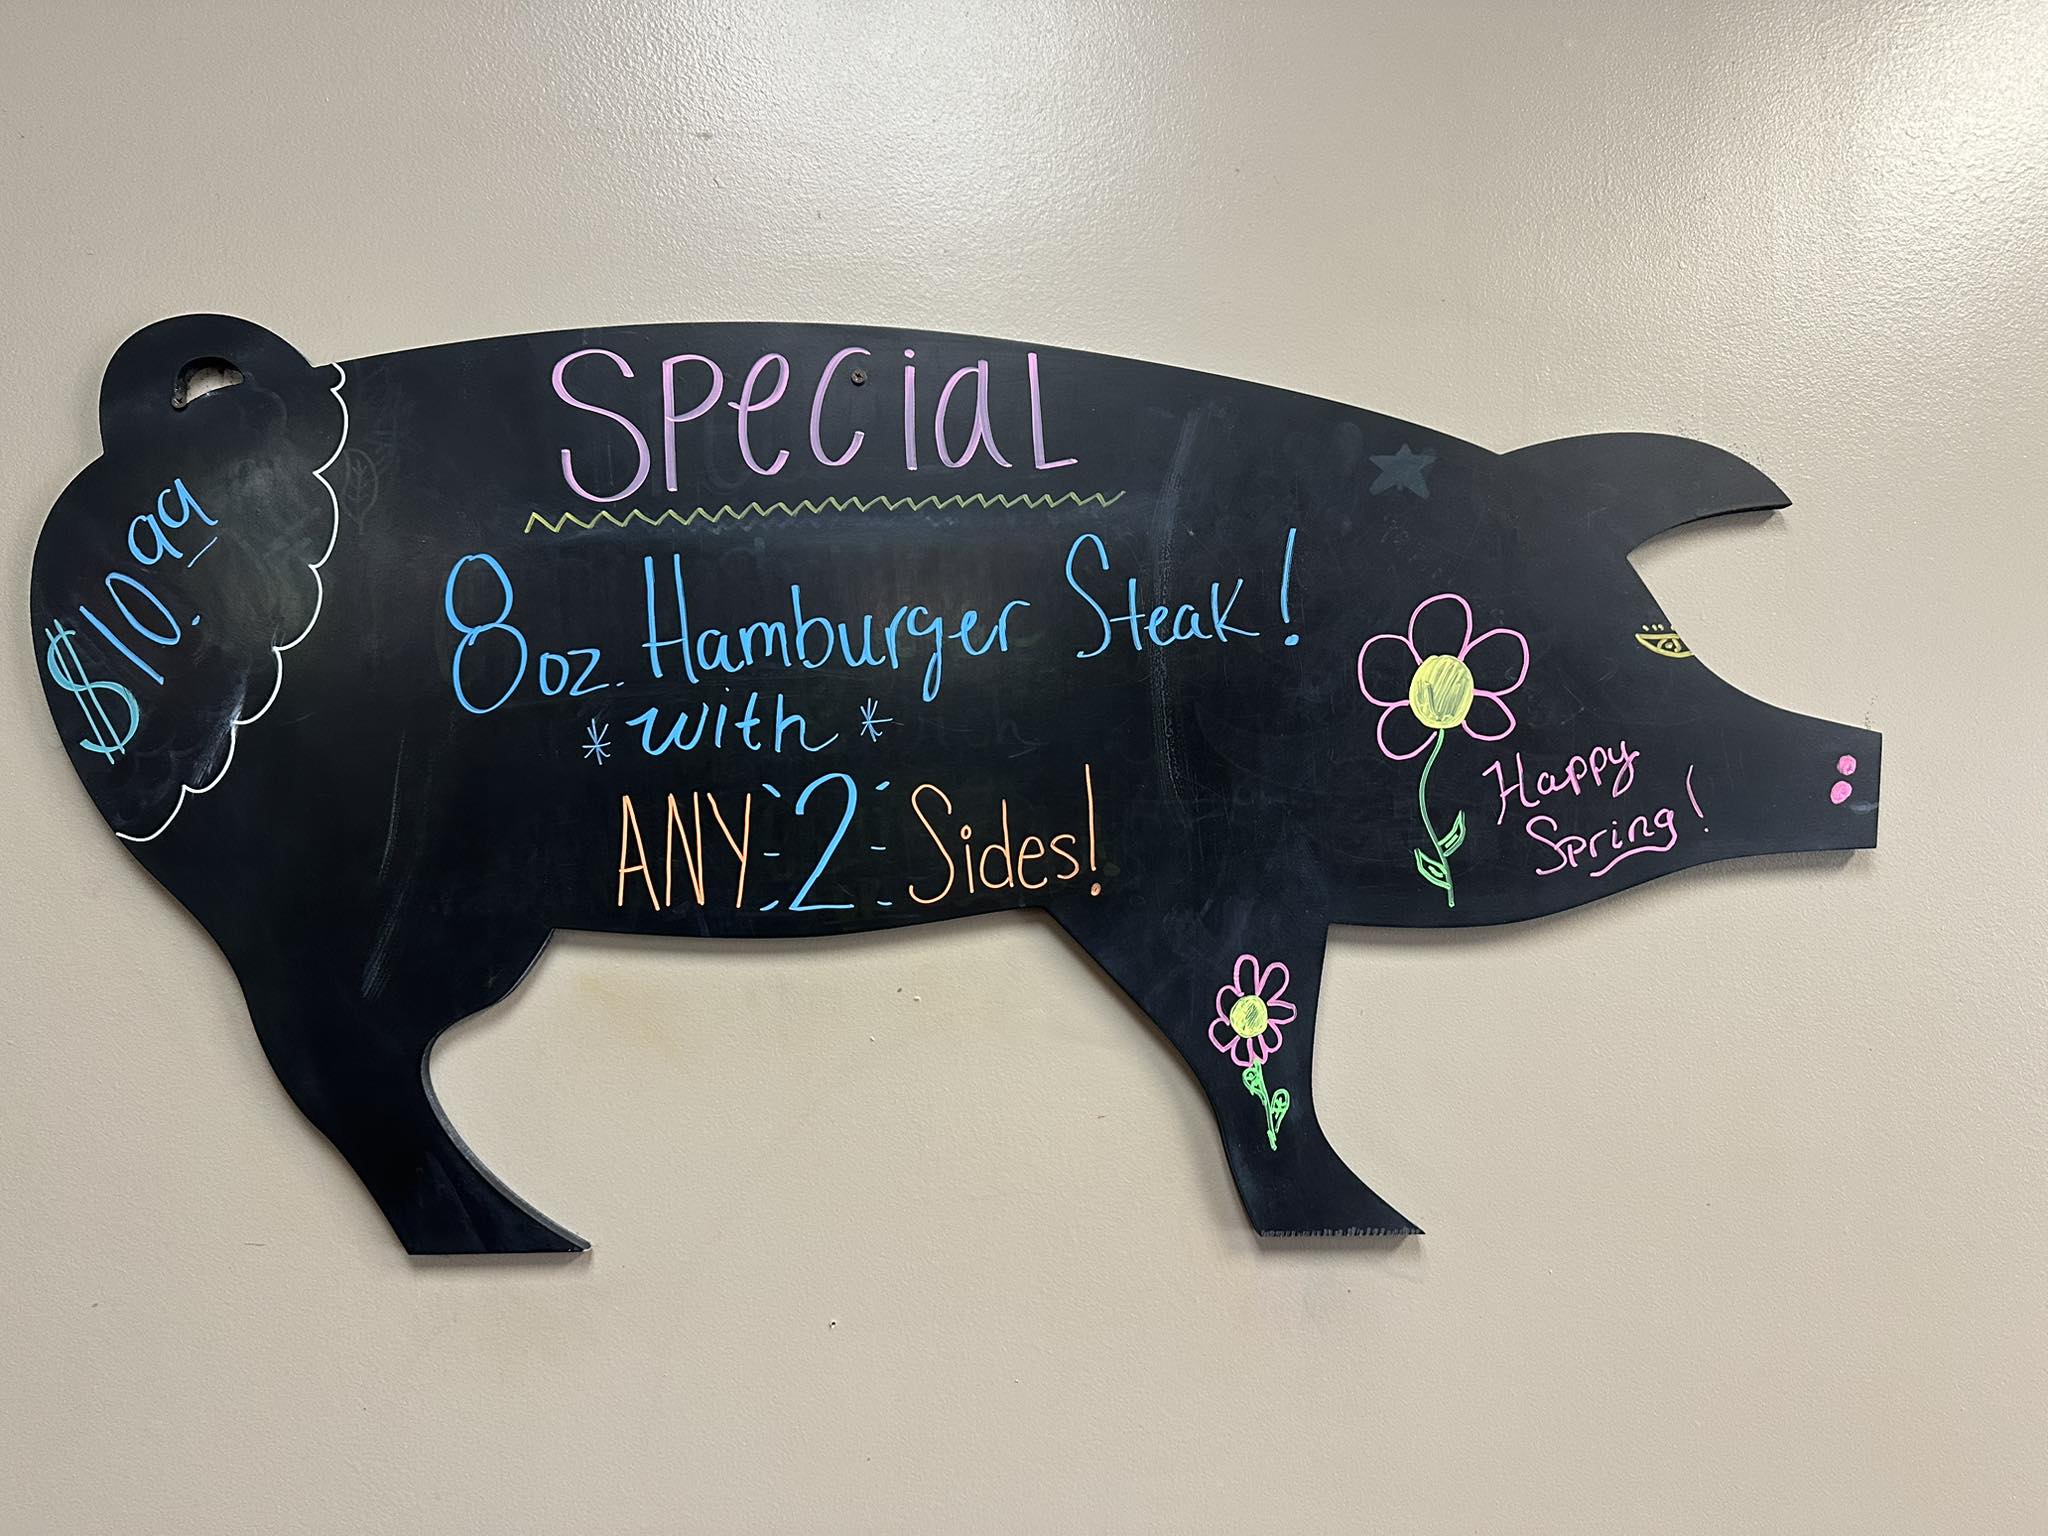 Special
$10.99
8oz. Hamburger Steak!
*with*
ANY 2 Sides!
Happy
Spring!